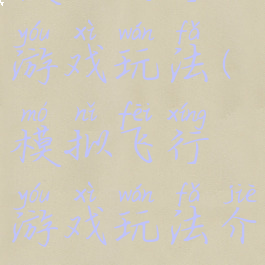 yóu xì wán fǎ
游戏玩法(
mó nǐ fēi xíng
模拟飞行
yóu xì wán fǎ jiè
游戏玩法介